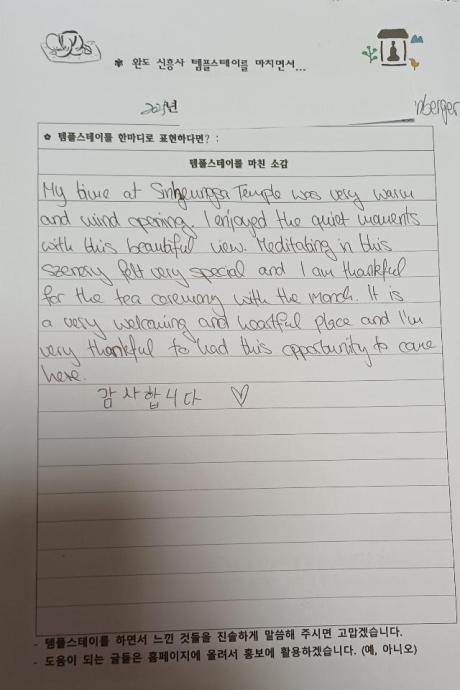 ※ 완도 신흥사 템플스테이를 마치면서...
년
nberger
✿ 템플스테이를 한마디로 표현하다면? :
템플스테이를 마친 소감
My time at Sinheungsa Temple was very warm
and mind opening. I enjoyed the quiet moments
with this beautiful view. Meditating in this
szenery felt very special and I am thankful
for the tea ceremony with the Monch. It is
a very welcoming and heartful place and I'm
very thankful to had this opportunity to come
here.
감사합니다 ♡
- 템플스테이를 하면서 느낀 것들을 진솔하게 말씀해 주시면 고맙겠습니다.
- 도움이 되는 글들은 홈페이지에 올려서 홍보에 활용하겠습니다. (예, 아니오)